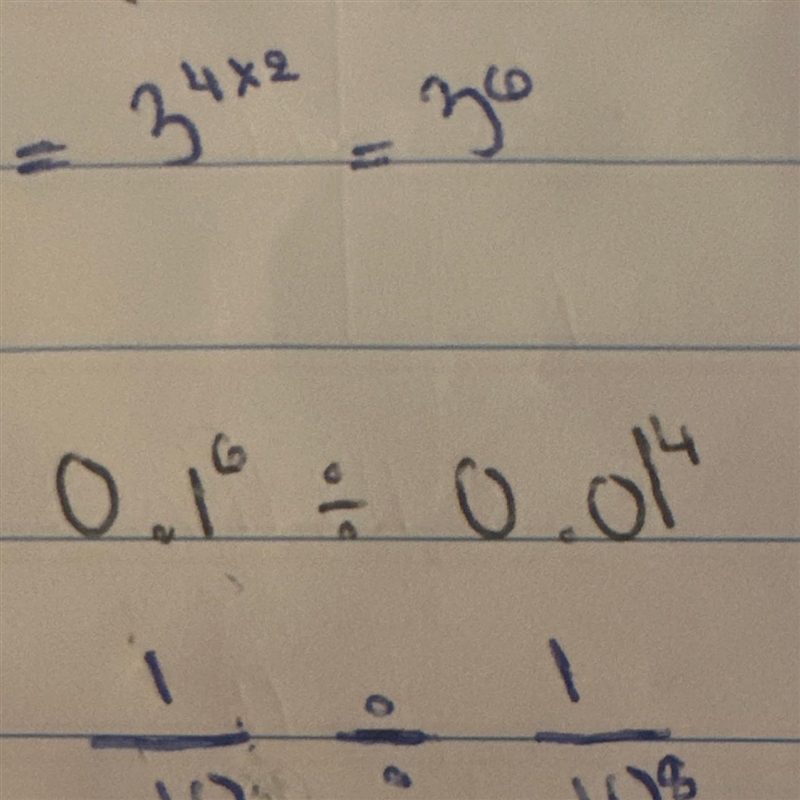 = 3^{4×2} = 3^6
0.1^6 ÷ 0.01^4
1 ÷ 1